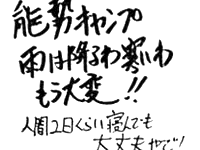 能勢キャンプ
雨は降るわ寒いわ
もう大変!!
人間2日くらい寝んでも
大丈夫やで!